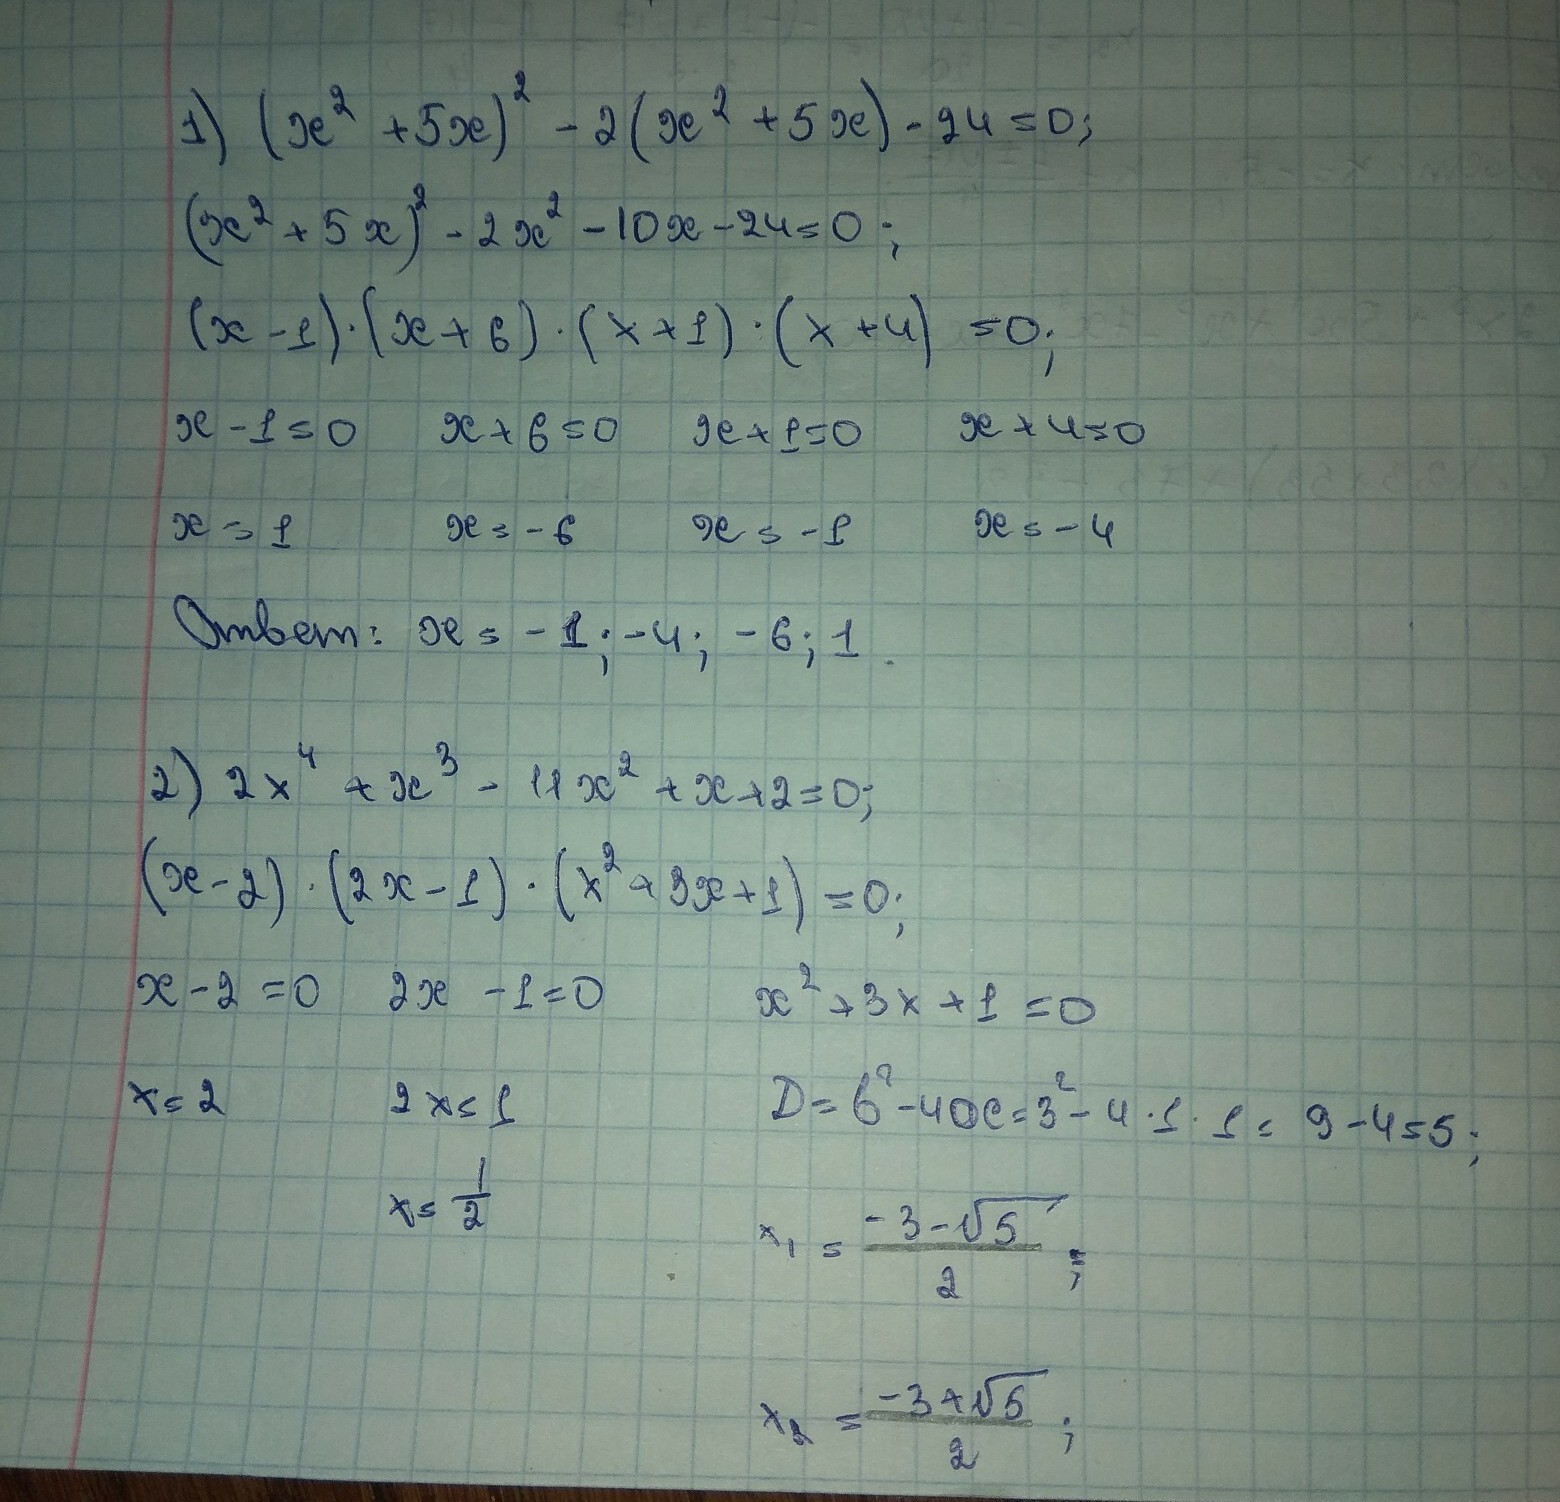 1) (x² + 5x)² - 2(x² + 5x) - 24 = 0;
(x² + 5x)² - 2x² - 10x - 24 = 0;
(x - 1)·(x + 6)·(x + 1)·(x + 4) = 0;
x - 1 = 0 x + 6 = 0 x + 1 = 0 x + 4 = 0
x = 1 x = -6 x = -1 x = -4
Ответ: x = -1; -4; -6; 1.
2) 2x⁴ + x³ - 11x² + x + 2 = 0;
(x - 2)·(2x - 1)·(x² + 3x + 1) = 0;
x - 2 = 0 2x - 1 = 0 x² + 3x + 1 = 0
x = 2 2x = 1 D = b² - 4ac = 3² - 4·1·1 = 9 - 4 = 5;
x = 1/2 x₁ = (-3 - √5)/2;
x₂ = (-3 + √5)/2;